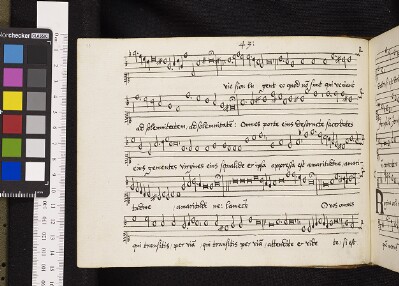 43:
vie sion lu gent eo quod nō sint qui veniant
ad solemnitatem, ad solemnitatē: Omnes porte eius destructe sacerdotes
eius gementes virgines eius squalide et ipsa oppressa est amaritudine, amari-
tudine amaritudine
O vos omnes
qui transitis per viā qui transitis per viā attendite et vide te: si est